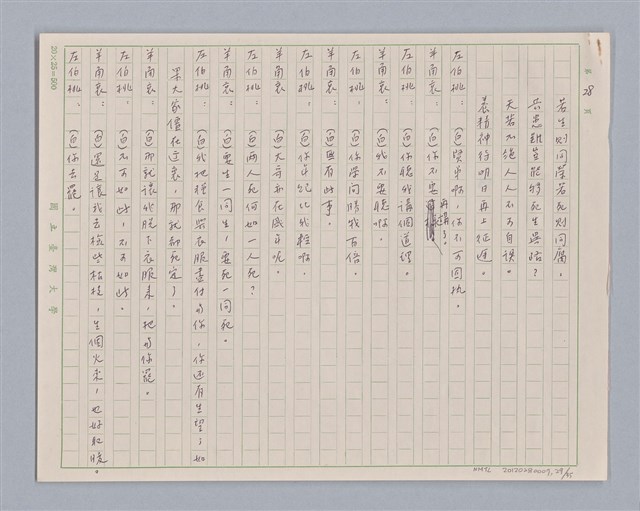 第28頁
若生則同榮若死則同腐,
共患難豈能將死生異路?
天若不絕人人不可自誤。
養精神待明日再上征途。
左伯桃:(白)賢弟啊,你不可固執。
羊角哀:(白)你不要再講了。
左伯桃:(白)你聽我講個道理。
羊角哀:(白)我不要聽啊。
左伯桃:(白)你學問勝我百倍。
羊角哀:(白)無有此事。
左伯桃:(白)你年紀比我輕啊。
羊角哀:(白)大哥亦在盛年呢。
左伯桃:(白)兩人死何如一人死?
羊角哀:(白)要生一同生,要死一同死。
左伯桃:(白)我把糧食與衣服盡付與你,你还有生望,如
果大家僵在这裏,那就都死定了。
羊角哀:(白)那就讓我脱下衣服來,把與你罷。
左伯桃:(白)不可如此,不可如此。
羊角哀:(白)還是讓我去檢些枯枝,生個火來,也好取暖。
左伯桃:(白)你去罷。
20×25=500
國立臺灣大學
NMTL 20120280009, 28/45